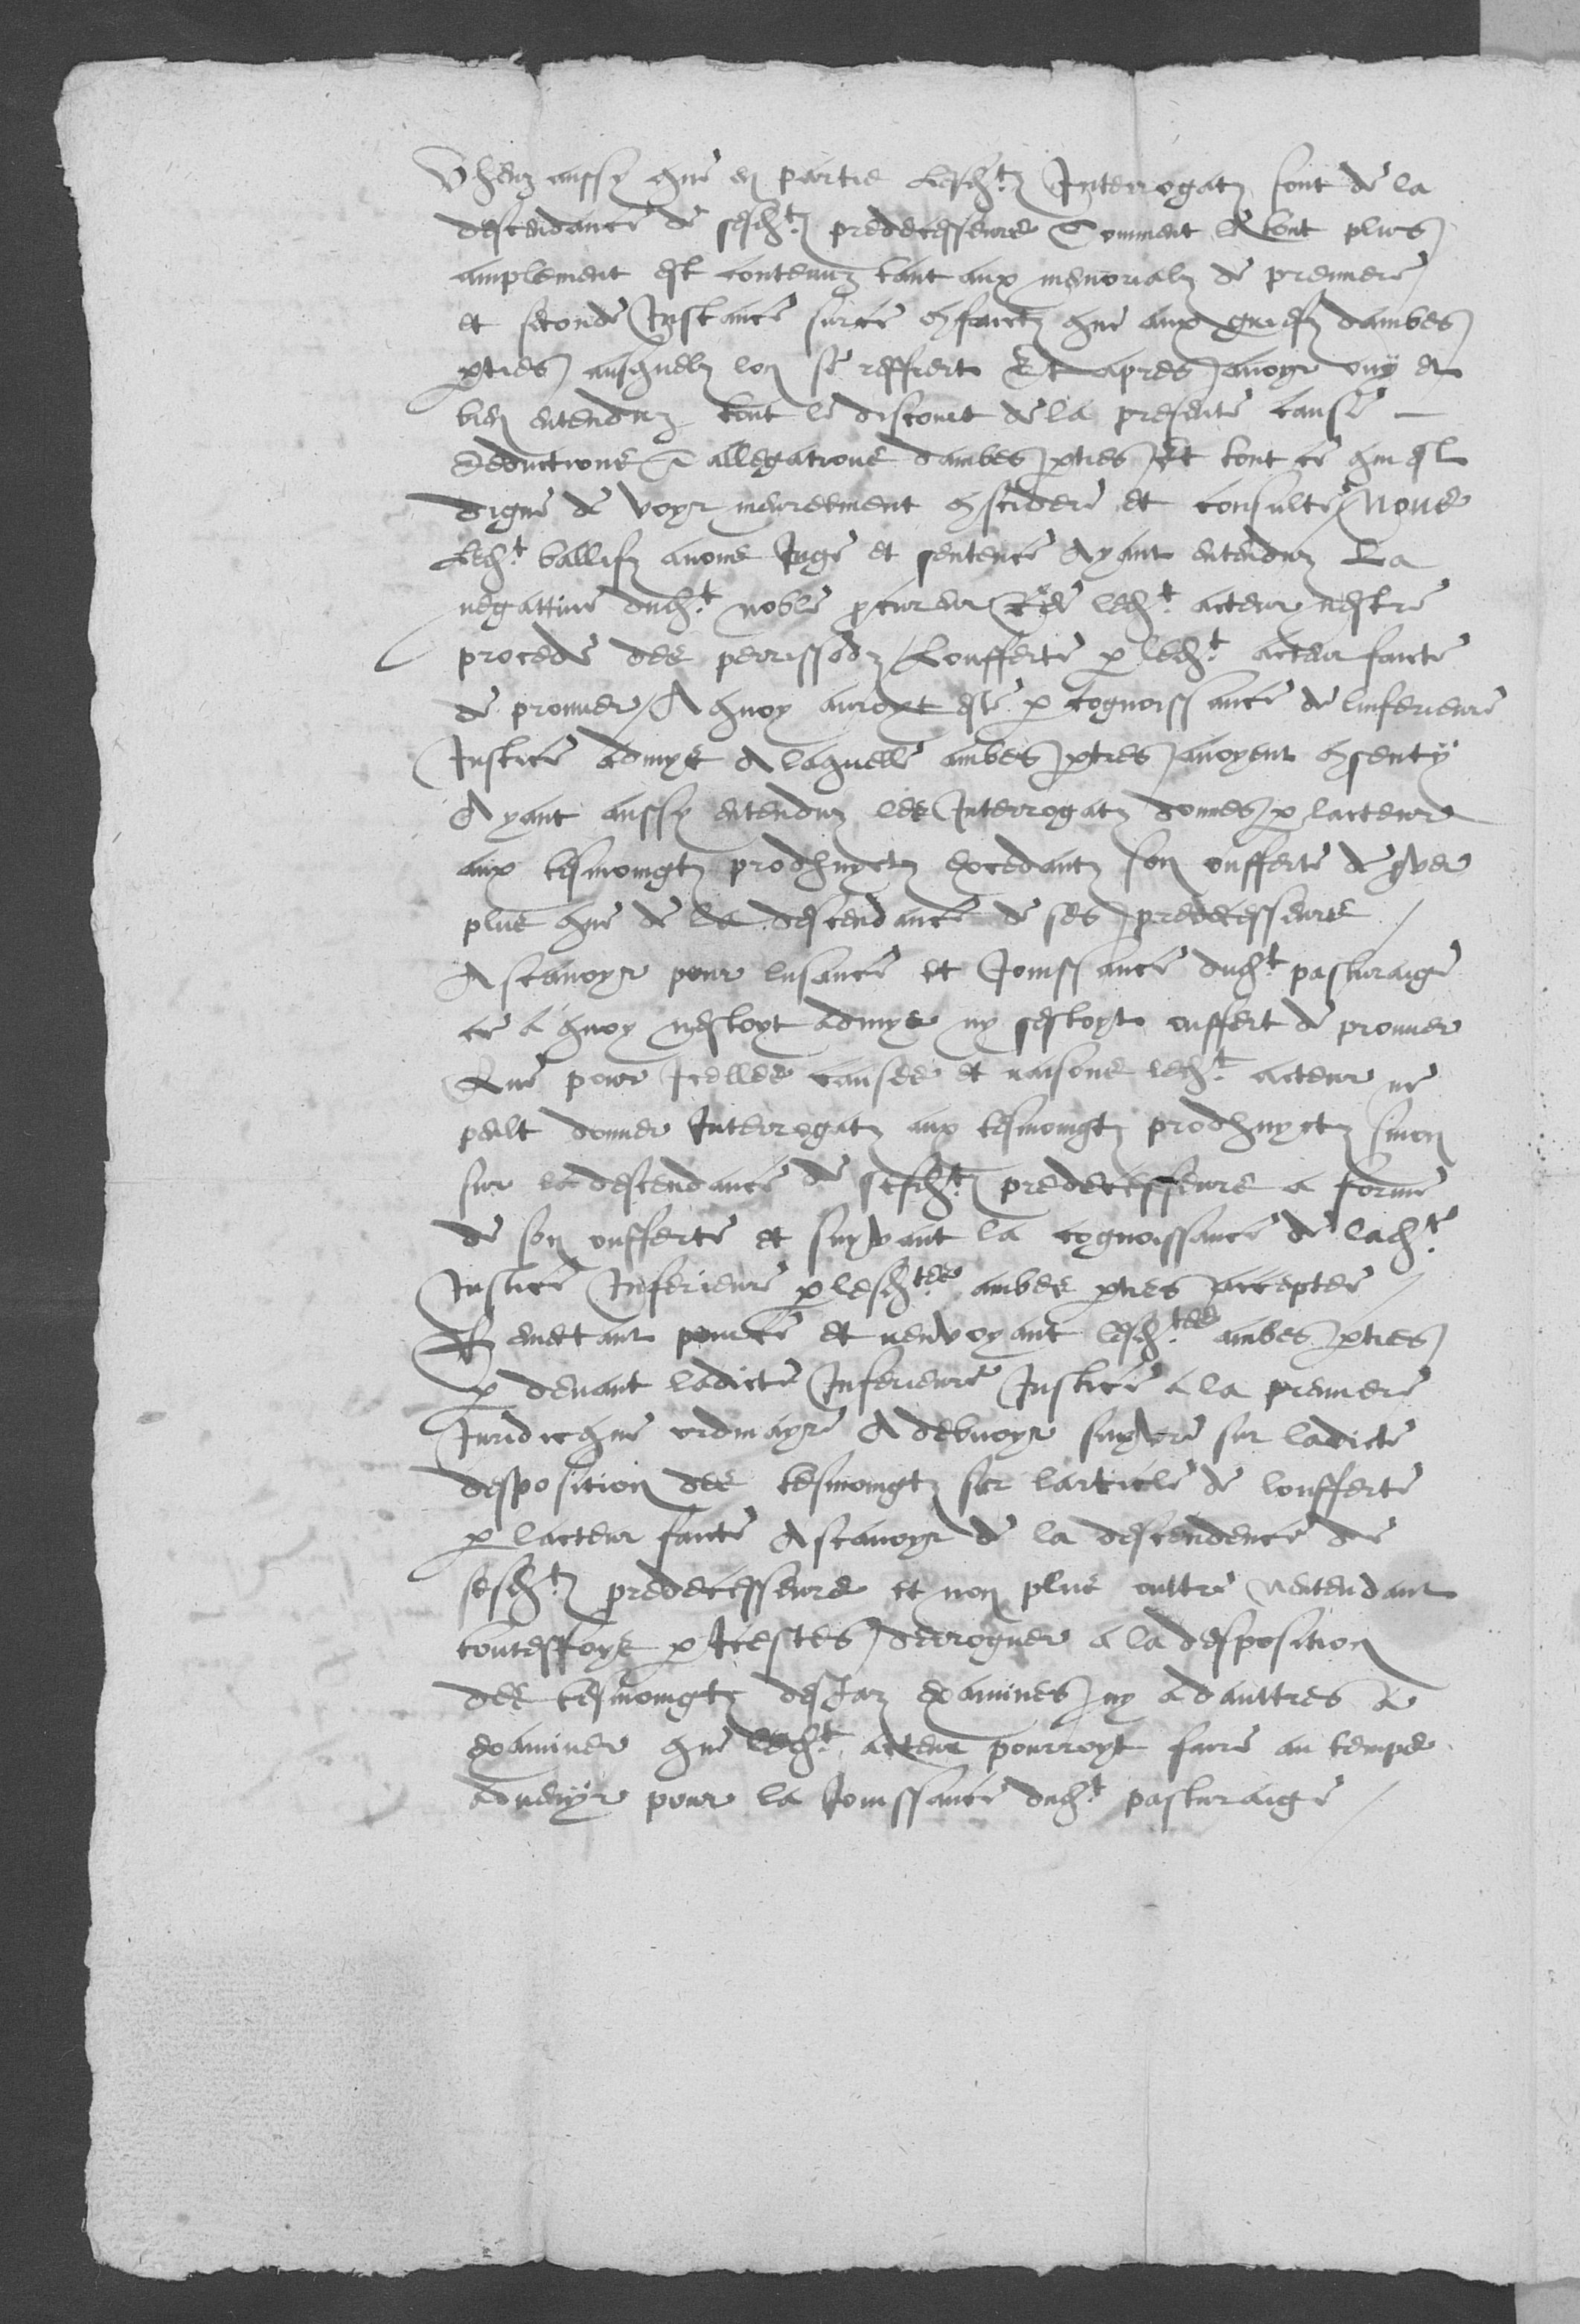 Vheuz aussy que en partie lesdtz Interrogatz sont de la
descendance de sesdtz predecesseurs Comment le tout plus
amplement est contenuz tant aux memorialz de premiere
et seconde Instance surce qfaictz que aux griefz dambes
pties ausquelz lon se reffiert Et apres avoyr ouy et
bien entenduz tout le discourt de la presente cause
Deductions & allegations dambes pties Et tout ce quest
digne de voyr meurement qsidere et consulte Nous
Ledt ballifz avons Juge et sentence Ayant entenduz La
negattive dudt noble pcureur Que ledt acteur nestre
procede des perrissodz Loufferte p ledt acteur faicte
de prouver / A quoy auroyt este p cognoissance de linferieure
Justice admys A laquelle ambes pties avoyent qsenty
Ayant aussy entenduz les Interrogatz donnes p lacteur
aux tesmoingtz prodhuyctz excedantz son oufferte de pver
plus que de la descendance de ses predecesseurs /
A scavoyr pour lusance et Jouissance dudt pasturaige
ce a quoy nestoyt admys ny sestoyt ouffert de prouver
Que pour Icelles causes et raisons ledt acteur ne
peult donner Interrogatz aux tesmoingtz prodhuyctz sinon
sur la descendance de sesdtz predecesseurs a forme
de son oufferte et suyvant la cognoissance de ladte
Justice Inferieure p lesdtes ambes pties acceptee /
Remettant pource et renvoyant lesdtes ambes pties
p devant ladicte Inferieure Justice a la premiere
Juridicque ordinayre A debvoyr suyvre sur ladicte
desposition des tesmoingtz sur larticle de loufferte
p lacteur faicte A scavoyr de la descendence de
sesdtz predecesseurs et non plus outtre nentendant
touteffoys p Icestes derroguer a la desposition
des tesmoingtz desJaz examines ny a dauttres a
examiner que ledt acteur pourroyt faire au temps
advenyr pour la Jouissance dudt pasturaige /